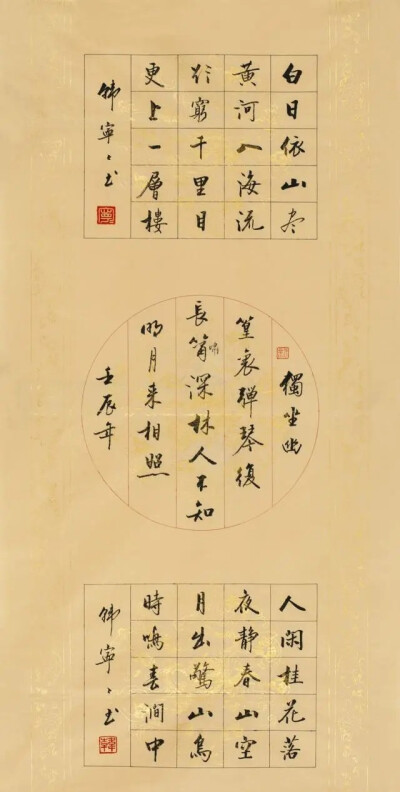 白日依山尽
黃河入海流
欲窮千里目
更上一層樓
韩寧〻书
獨坐幽
篁裏弹琴復
長嘯深林人不知
明月来相照
壬辰年
人闲桂花落
夜静春山空
月出驚山鳥
時鳴春澗中
韩寧〻书